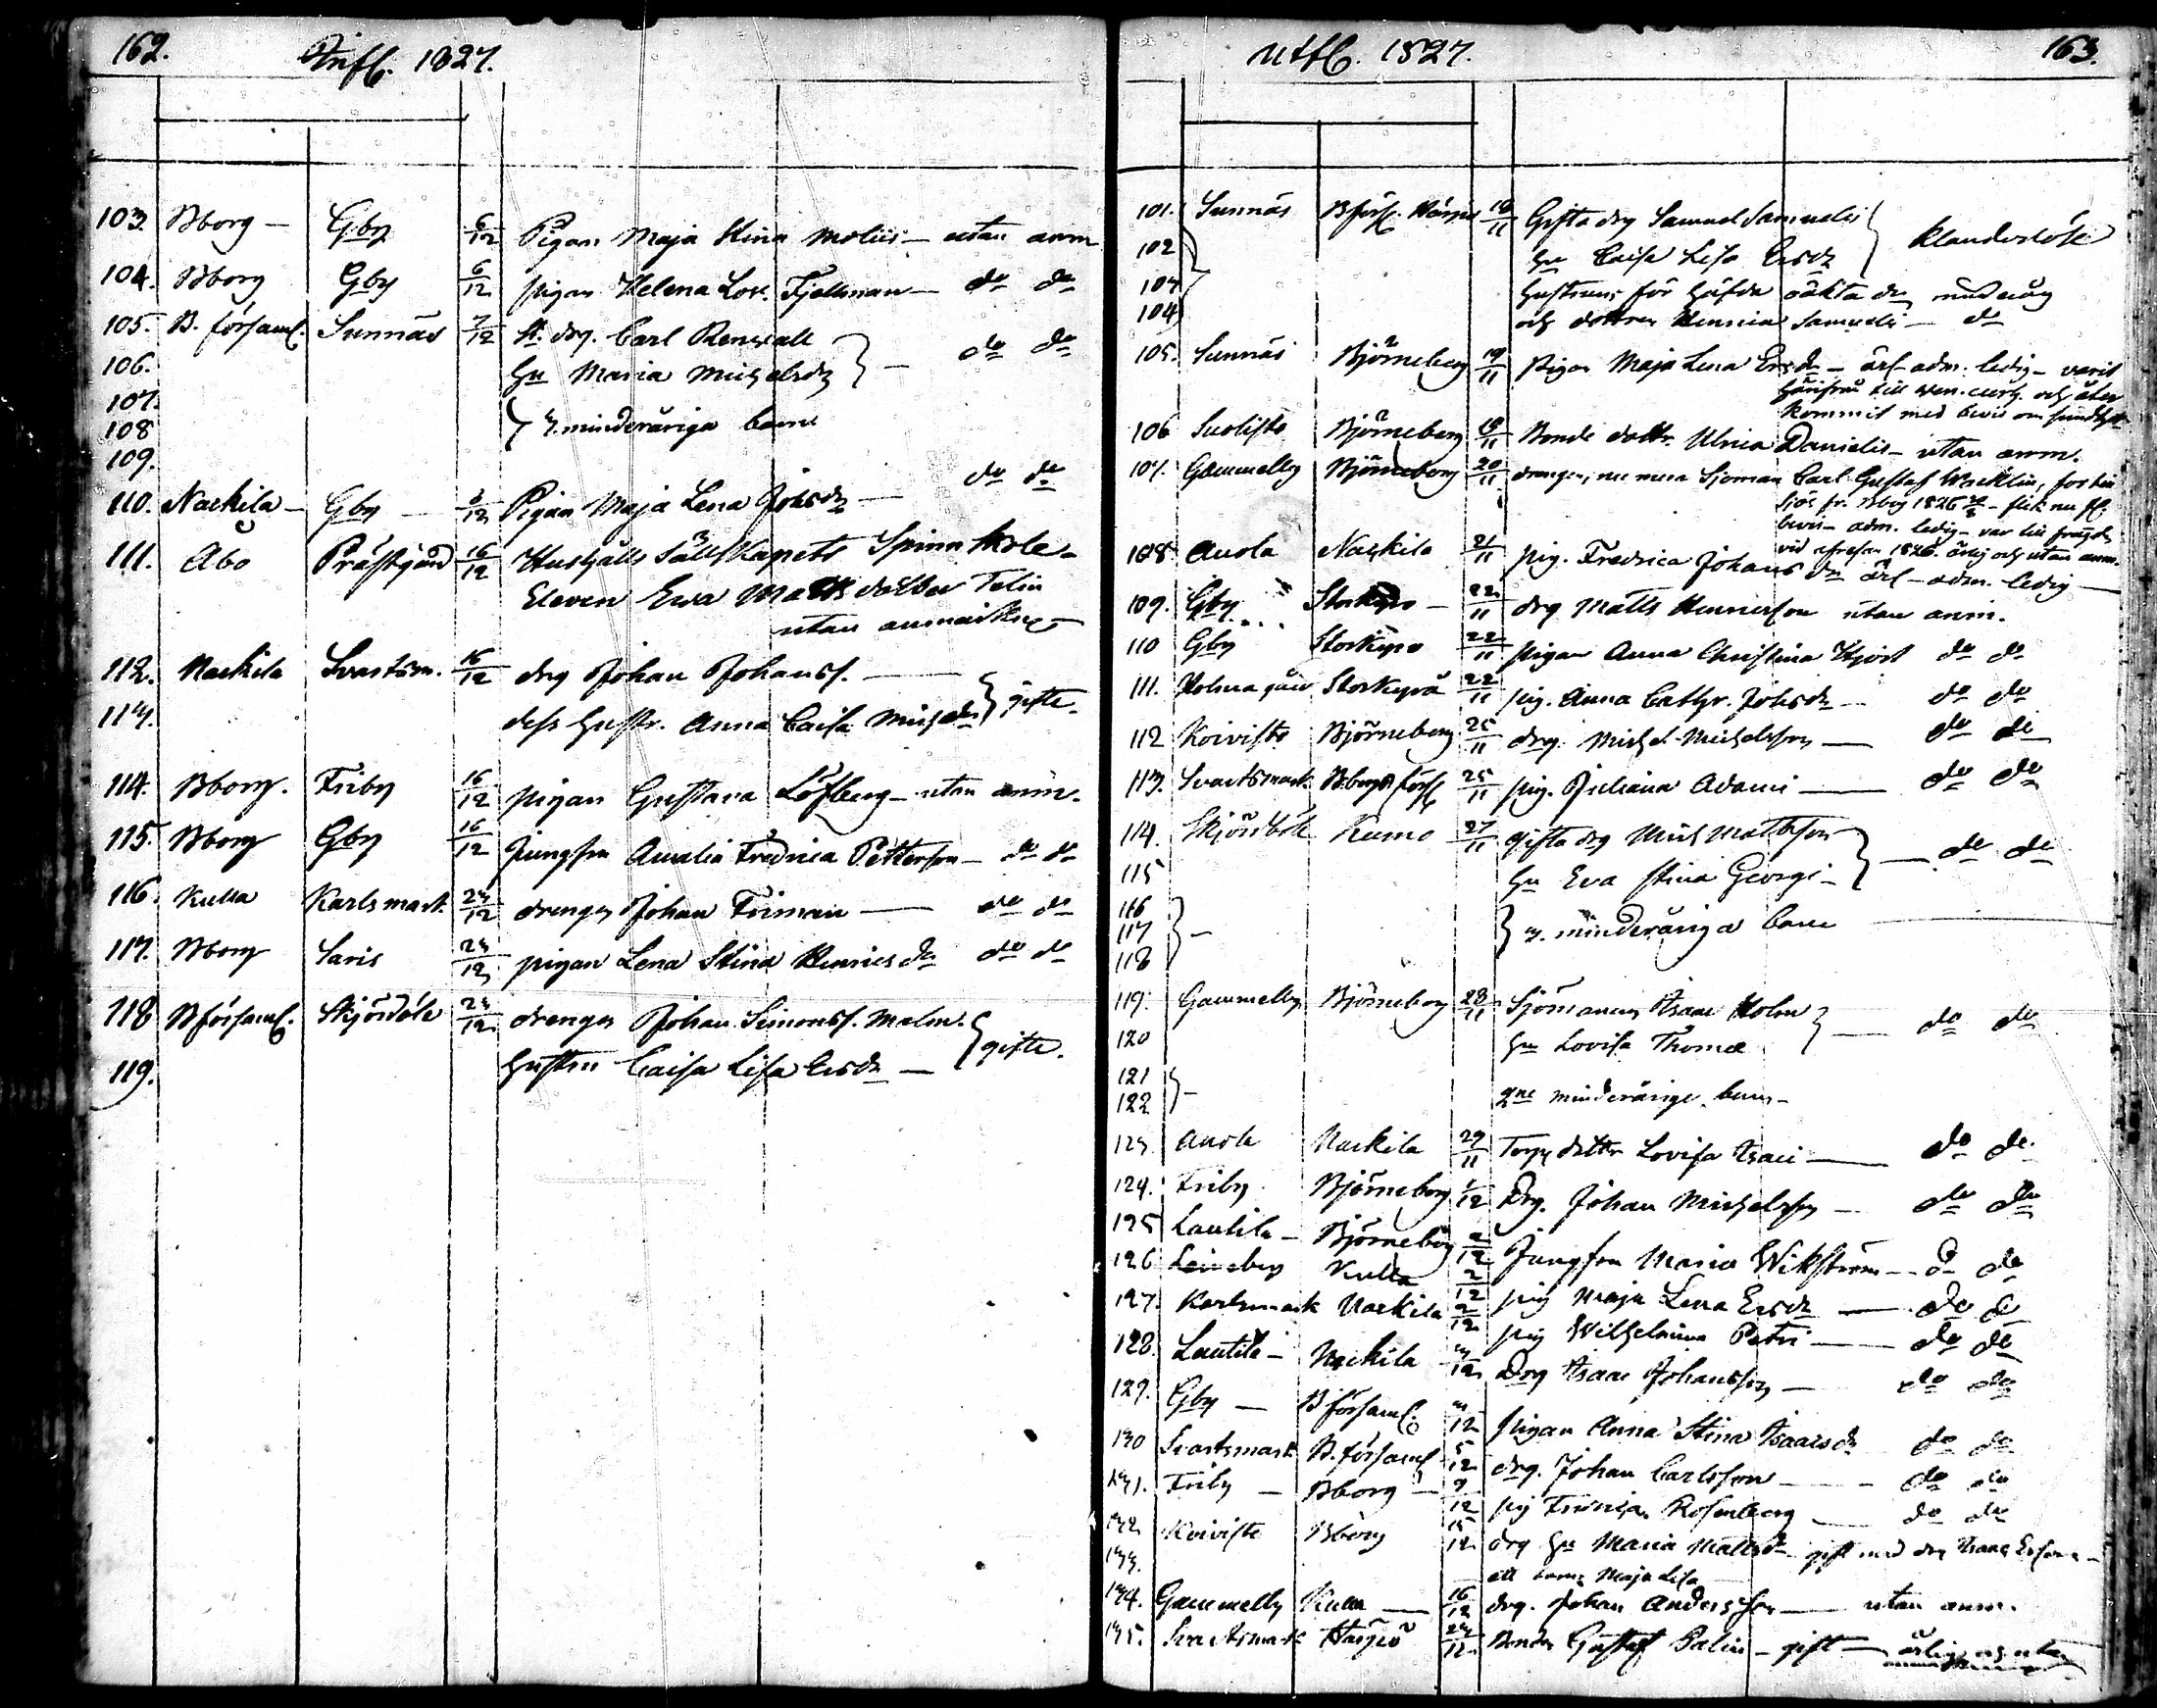 162. Infl. 1827.
103. Bborg - Gby 6/12 Pigan Maja Stina Moliis - utan anm
104. Bborg Gby 6/12 pigan Helena Lov. Fjellman - do do
105. B. församl. Sunnäs 7/12 St. drg. Carl Renvall
106. Hu Maria Michelsdr } - do do
107.
108 } 3. minderåriga barn
109. do do
110. Nackila - Gby - 12 Pigan Maja Lena Johsdr -
111. Åbo Prästgård 16/12 Hushålls Sällskapets Spinnskole-
Eleven Ewa Mattsdotter Telin
utan anmärkn
112. Nackila Svartsm. 16/12 drg Johan Johanss. -
113. dess hustr. Anna Caisa Michsdr } gifte.
114. Bborg. Friby 16/12 pigan Gustava Löfberg - utan anm.
115. Bborg Gby 16/12 Jungfru Amalia Fredrica Petterson - do do
116. Kulla Karlsmark. 23/12 drengen Johan Firman - do do
117. Bborg Saris 23/12 pigan Lena Stina Henricsdr do do
118 B församl. Skjördböle 23/12 drengen Johan Simonss. Malm.
119. Hustru Caisa Lisa Ersdr - } gifte.
Utfl. 1827. 163.
101. Sunnäs B förs. 19/11 Gifta drg Samuel Samuelis
102 hu Caisa Lisa Ersdr } klanderlöse
103 Hustruns för
104 och dottren Henrica Samuelis - do
105. Sunnäs Björneborg 19/11 pigan Maja Lena Ersdr - ärl. adm. ledig - varit
härifrån till och åter
kommit med bevis om
106 Suolisto Björneborg 19/11 Bonde dottr. Ulrica Danielis - utan anm.
107. Gammelby Björneborg 20/11 drengen, nu mera Sjöman Carl Gustaf Wacklin, for till
Sjös fr. Bborg 1826 - fick nu fl.
bevis - adm. ledig - var till frägd
vid afresan 1826. ärlig och utan anm.
108 Anola Nackila 21/11 pig. Fredrica Johansdr ärl - adm. ledig -
109. Gby Storkyro - 22/11 drg Matts Henricsson utan anm.
110 Gby Storkyro 22/11 pigan Anna Christina Hjort do do
111. Holmagård Storkyrå 22/11 pig. Anna Cathr. Johsdr - do do
112 Koivisto Björneborg 25/11 drg. Michel Michelsson - do do
113. Svartsmark. Bborgs förs 25/11 pig. Juliana Adami - do do
114. Skjördböle Kumo 27/11 gifta drg Mich Mattsson
115 hu Eva Stina Georgi - } - do do
116
117 } - } 3. minderåriga barn
118
119. Gammelby Björneborg 28/11 Sjömannen Isaac Holm
120 hu Lovisa Thomæ } - do do
121
122 } - 2ne minderårige barn -
123 Anola Nackila 29/11 Torp dottr Lovisa Isaci - do do
124. Friby Björneborg 1/12 Drg. Johan Michelsson - do do
125 Lautila - Björneborg 2/12 Jungfru Maria Wikström - do do
126 Leineby Kulla 2/12 pig Maja Lena Ersdr - do do
127. Karlsmark Nackila 2/12 pig Wilhelmina Petri - do do
128. Lautila - Nackila 3/12 Drg Isaac Johansson - do do
129. Gby - B församl. 3/12 pigan Anna Stina Isaacsdr do do
130 Svartsmark B. församl 5/12 drg. Johan Carlsson - do do
131. Friby - Bborg - 9/12 pig Rosenberg - do do
132 Koivisto Bborg 15/12 drg hu Maria Mattsdr - gift med drg Isaac Ersson -
133. ett barn Maja Lisa
134. Gammelby Kulla - 16/12 drg. Johan Andersson - utan anm.
135. Svartsmark 23/12 Bonden Gustaf Palin - gift - ärlig och utan